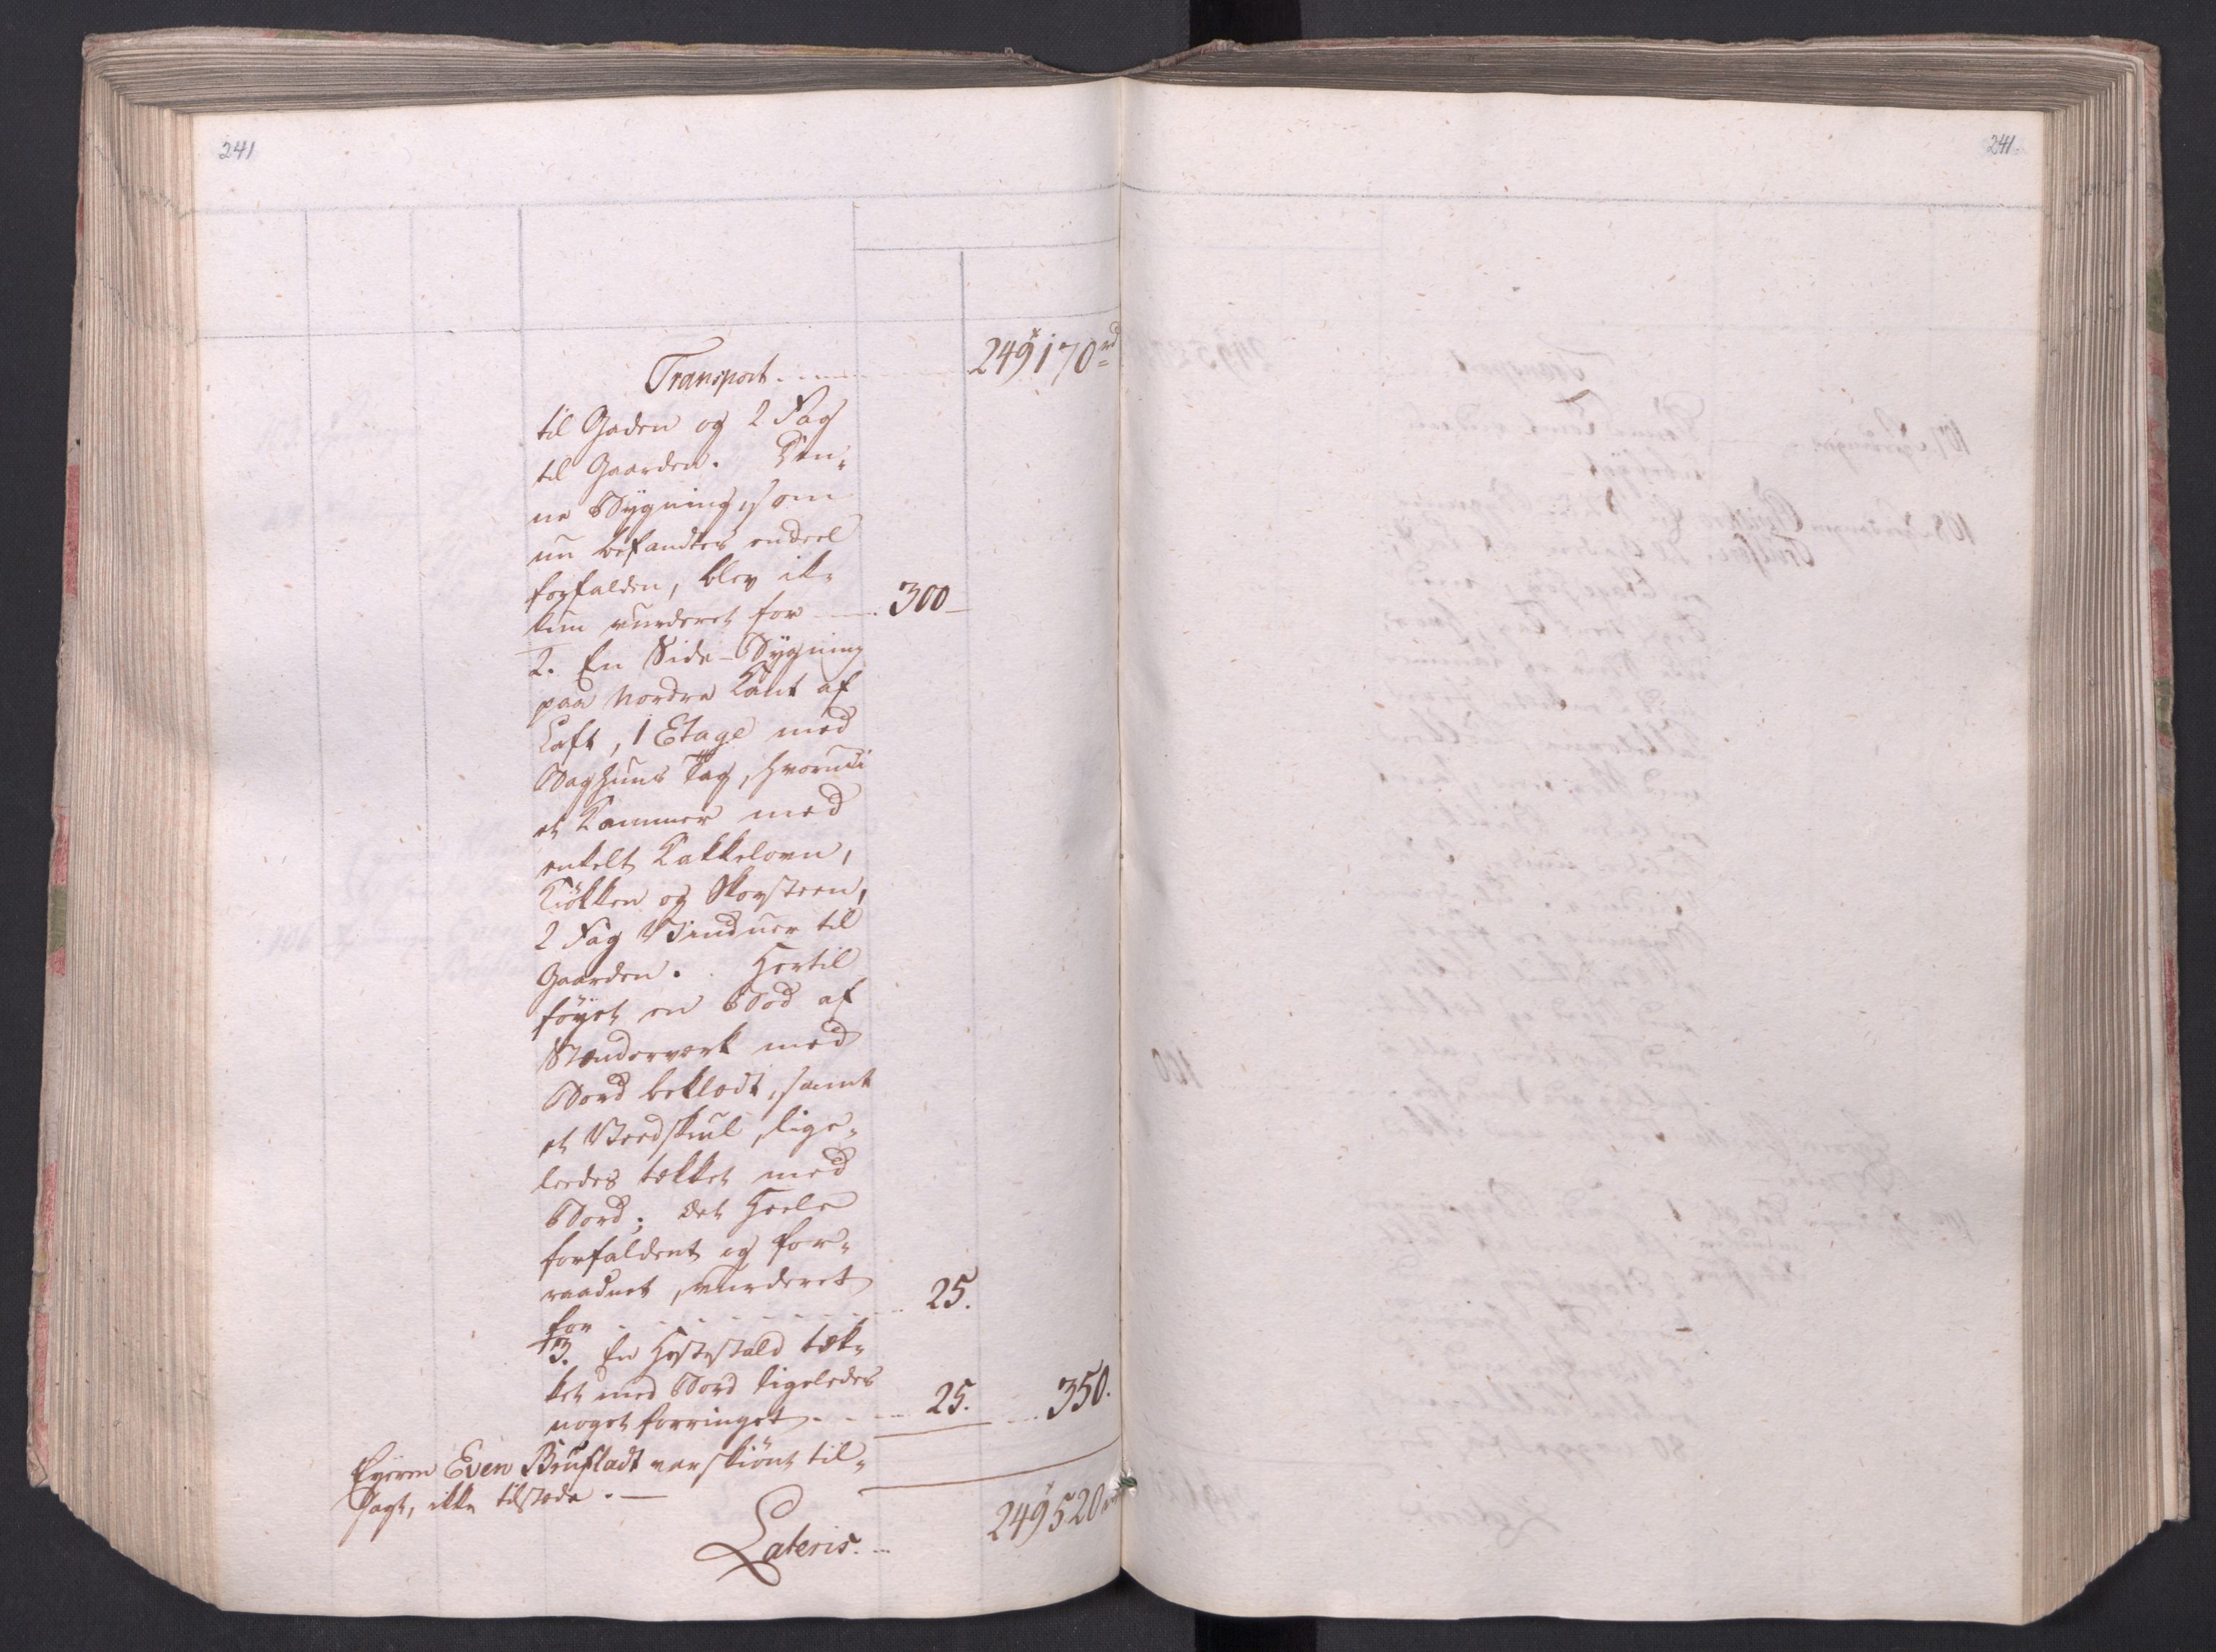 241
241.
Transport. 249170 rd
til Gaden og 2 Fag
til Gaarden. Den-
ne Bygning, som
nu befandtes endeel
forfalden, blev ik-
kun vurderet for 300
2. En Side-Bygning
paa Nordre Kant af
Laft, 1 Etage med
Baghuns Tag, hvorudi
et Kammer med
enkelt Kakkelovn,
Kiökken og Skorsteen,
2 Fag Vinduer til
Gaarden. Hertil
föyet en Bod af
Stenderverk med
Bord beklædt, samt
et Vedskiul, lige-
ledes tækket med
Bord; det Heele
forfaldent og for-
raadnet, vurderet
for 25.
3. En Hestestald tæk-
ket med Bord ligeledes
noget forringet 25. 350.
Eyeren Even Brufladt var skiönt til-
sagt, ikke tilstæde. —
Lateris. 249520 rd